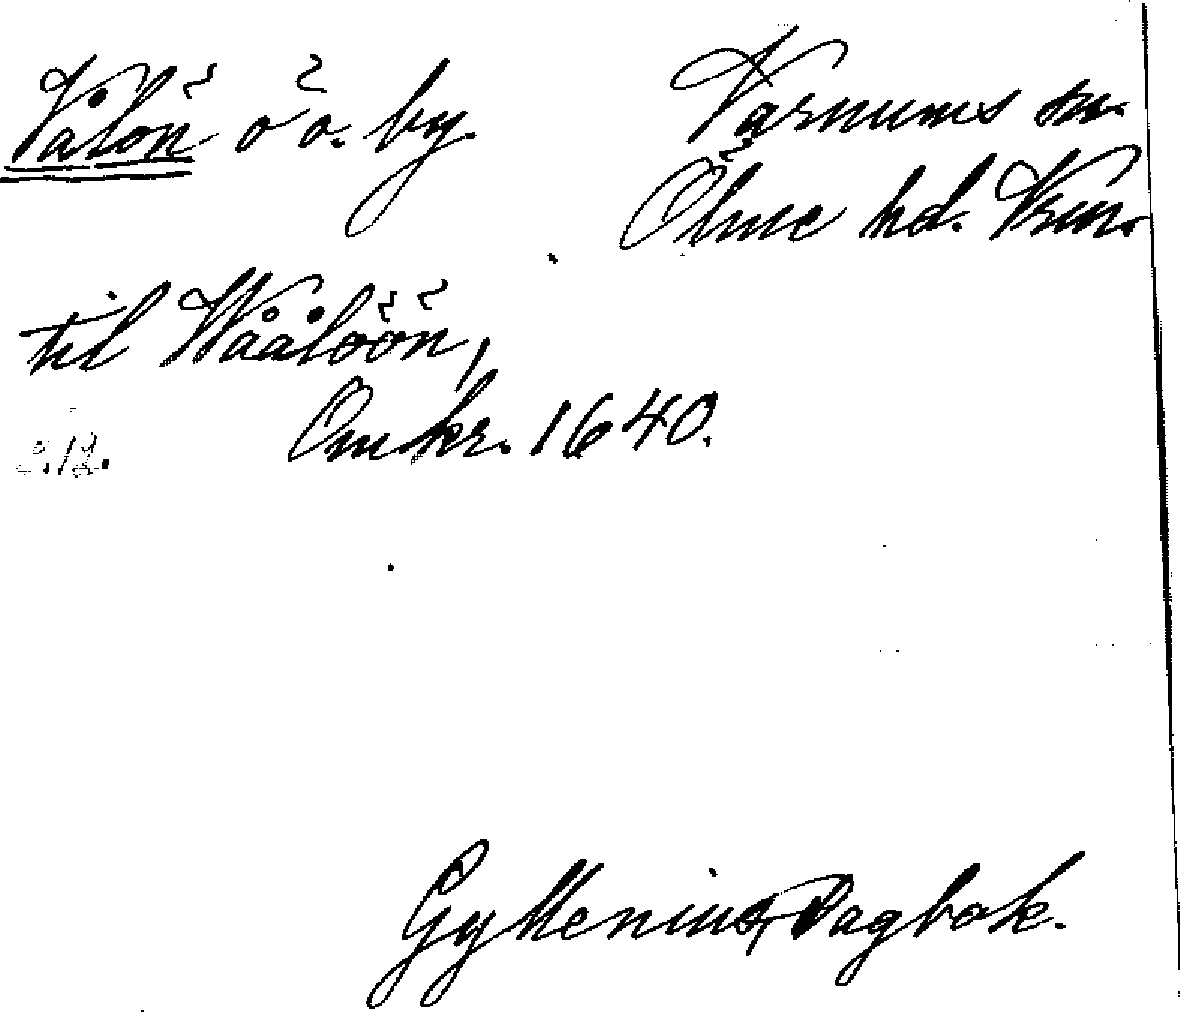 Vålön ö o. by. Varnums sn.
Ölme hd. Vrm.
til Wåålöön,
Omkr. 1640.
s. 12.
Gyllenius, Dagbok.